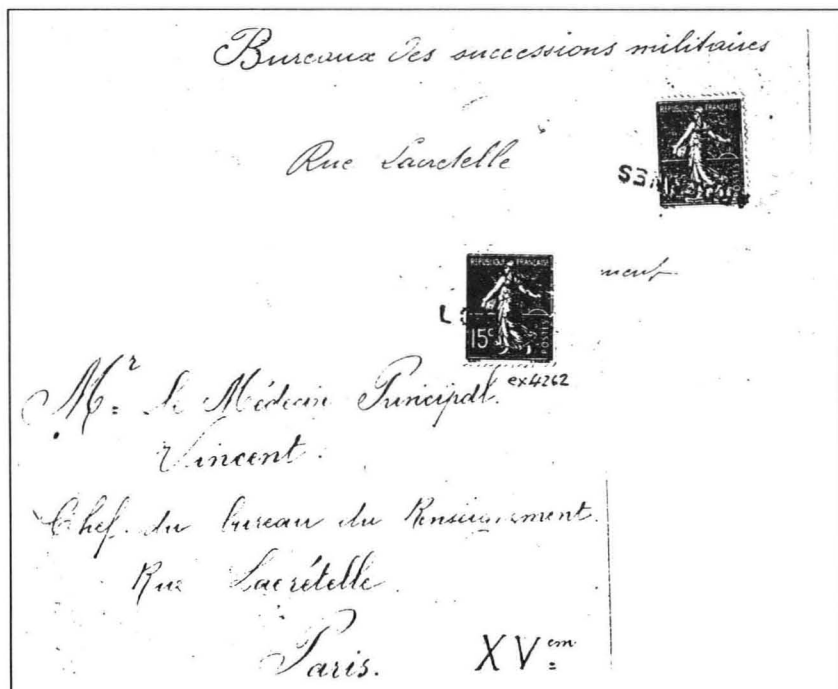 Bureaux des successions militaires
RÉPUBLIQUE FRANÇAISE
Rue Lacretelle
RÉPUBLIQUE FRANÇAISE
15c POSTES
ment
ex4262
Mr Le Médecin Principal.
Vincent.
Chef. du bureau du Renseignement.
Rue Lacrételle
Paris. XVem